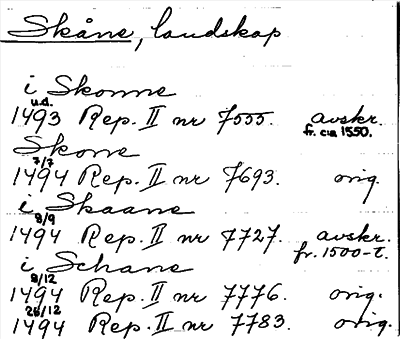 Skåne, landskap
i Skonne
u.d.
1493 Rep. II nr 7555. avskr.
fr. ca 1550.
Skone
7/7
1494 Rep. II nr 7693. orig.
i Skaane
9/9
1494 Rep. II nr 7727. avskr.
fr. 1500-t.
i Schane
9/12
1494 Rep. II nr 7776. orig.
26/12
1494 Rep. II nr 7783. orig.